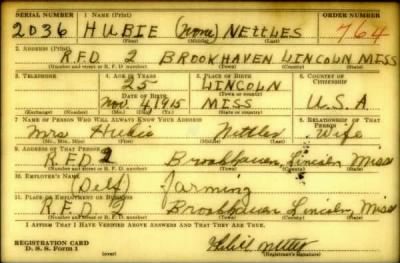 SERIAL NUMBER 1. NAME (Print) ORDER NUMBER
2036 HUBIE (none) NETTLES 764
(First) (Middle) (Last)
2. ADDRESS (Print)
R.F.D. 2 BROOKHAVEN LINCOLN MISS
(Number and street or R. F. D. number) (Town) (County) (State)
3. TELEPHONE 4. AGE IN YEARS 5. PLACE OF BIRTH 6. COUNTRY OF CITIZENSHIP
25 LINCOLN
DATE OF BIRTH (Town or county)
Nov. 4 1915 MISS U.S.A.
(Exchange) (Number) (Mo.) (Day) (Yr.) (State or country)
7. NAME OF PERSON WHO WILL ALWAYS KNOW YOUR ADDRESS 8. RELATIONSHIP OF THAT PERSON
Mrs Hubie Nettles Wife
(Mr., Mrs., Miss) (First) (Middle) (Last)
9. ADDRESS OF THAT PERSON
R.F.D 2 Brookhaven, Lincoln, Miss
(Number and street or R. F. D. number) (Town) (County) (State)
10. EMPLOYER'S NAME
(Self) farming
11. PLACE OF EMPLOYMENT OR BUSINESS
R.F.D 2 Brookhaven Lincoln, Miss
(Number and street or R. F. D. number) (Town) (County) (State)
I AFFIRM THAT I HAVE VERIFIED ABOVE ANSWERS AND THAT THEY ARE TRUE.
REGISTRATION CARD
D. S. S. Form 1 (over) Hubie Nettles
(Registrant's Signature)